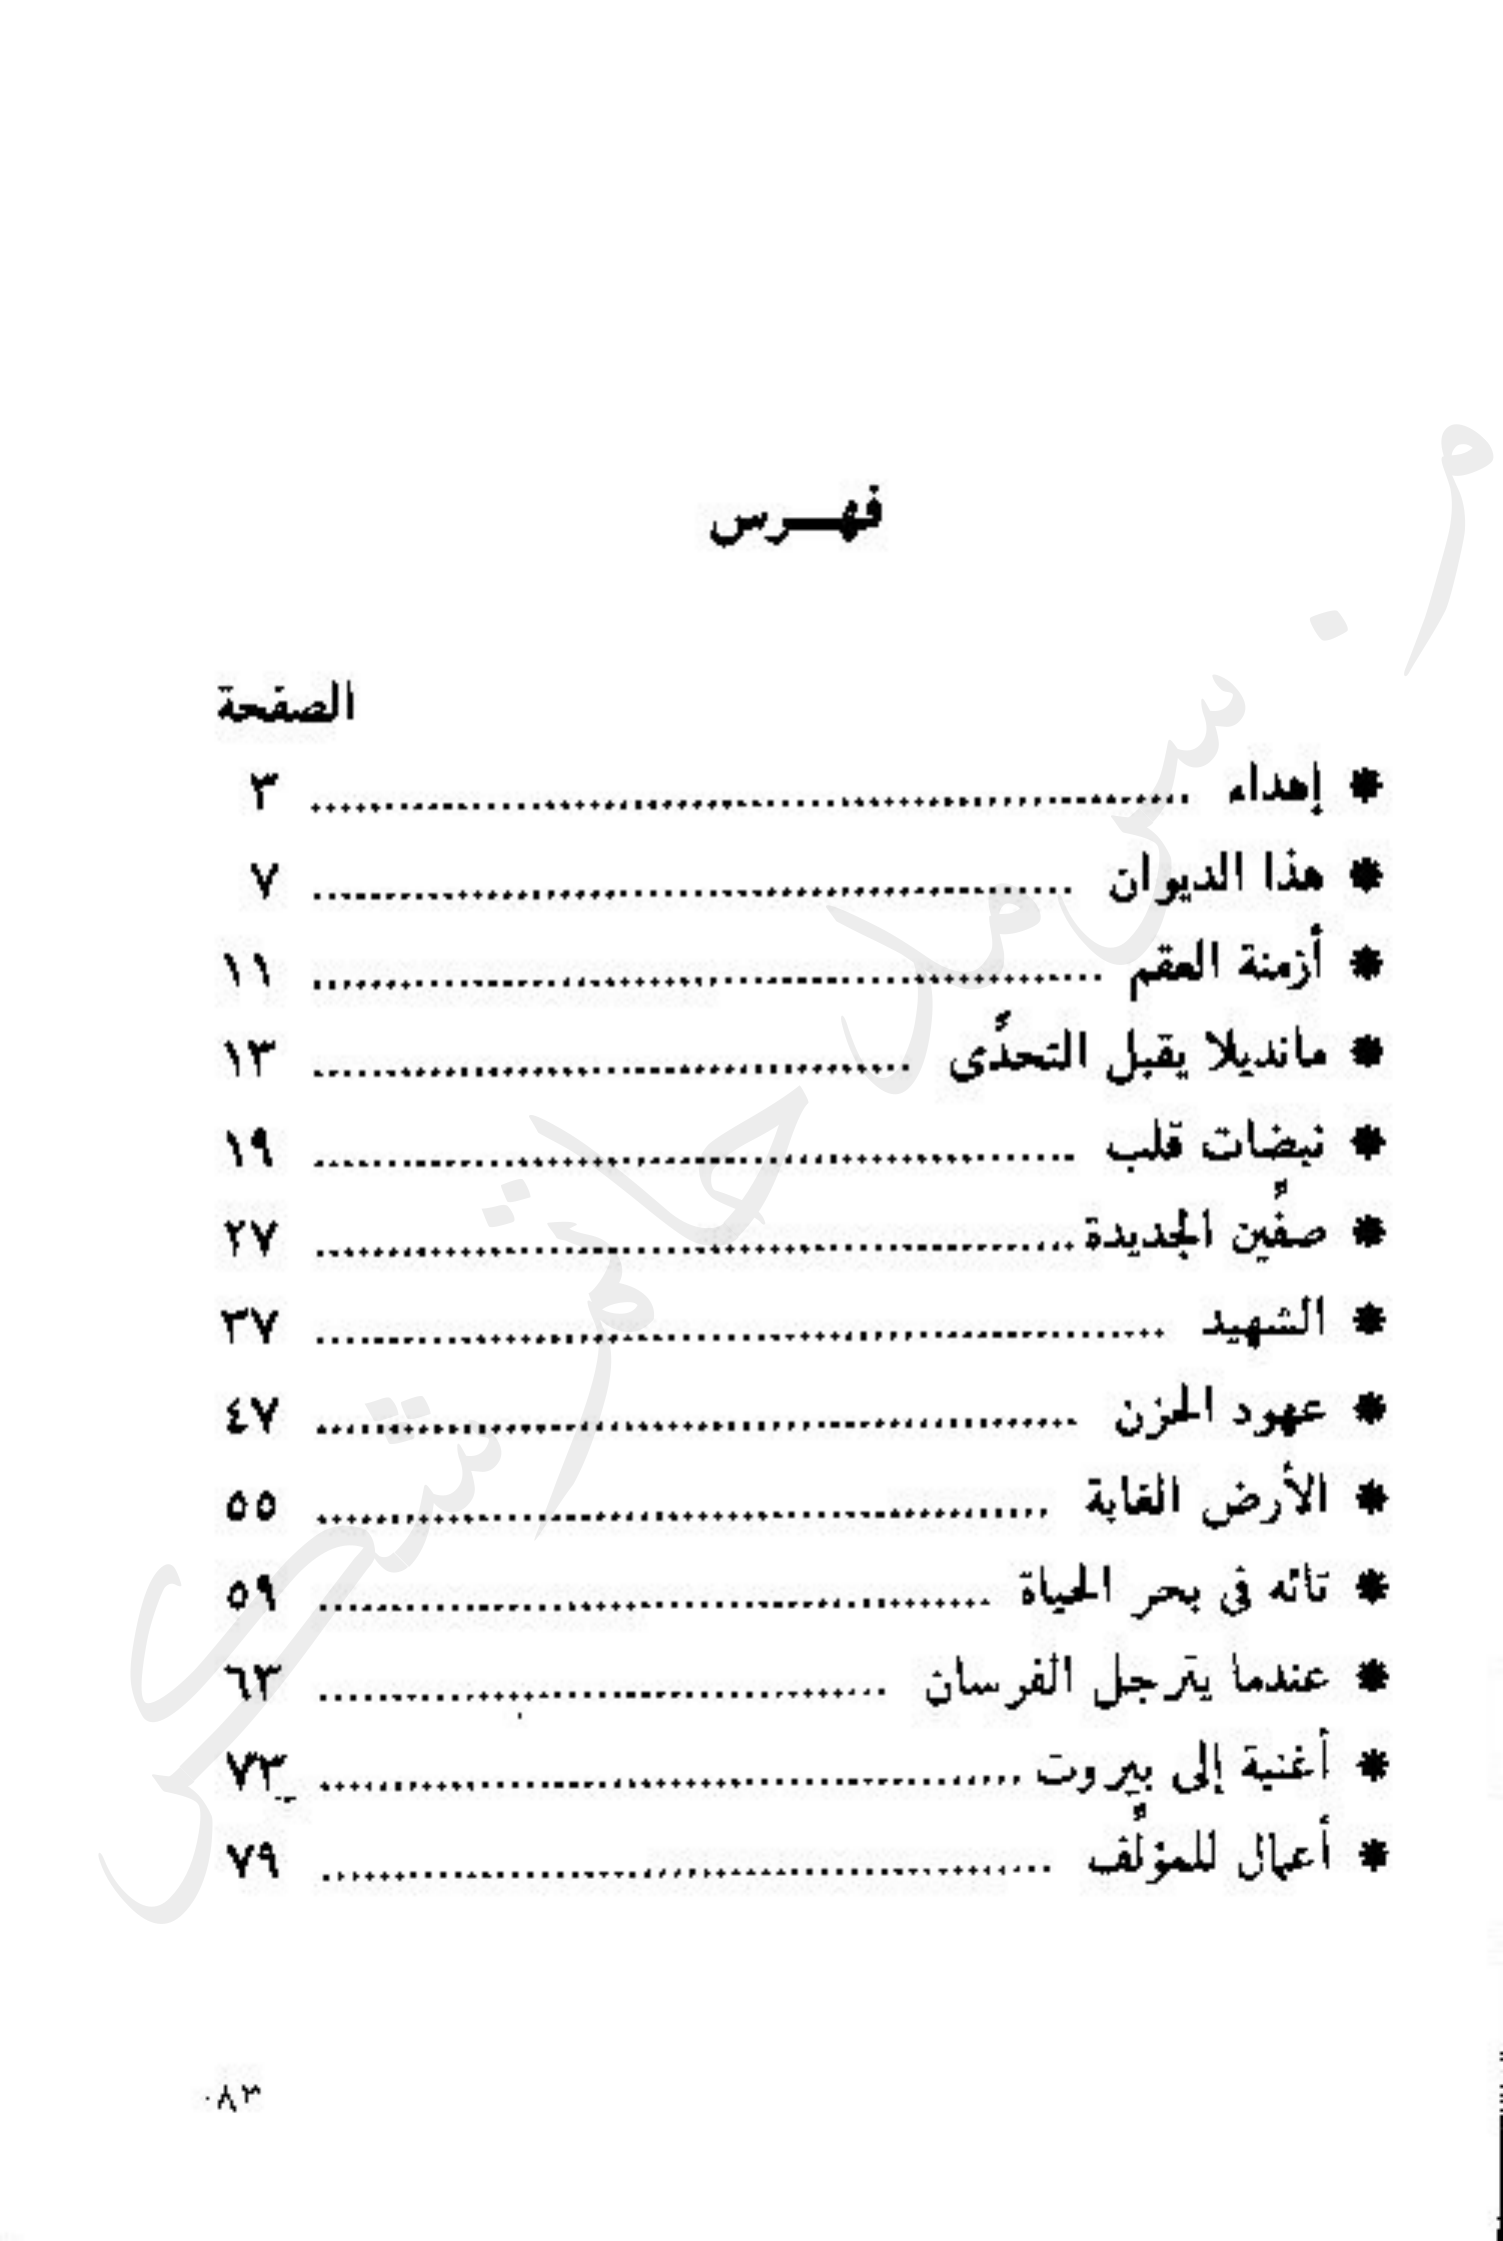 فهـــرس
الصفحة
* إهداء ........................................ ٣
* هذا الديوان ........................................ ٧
* أزمنة العقم ........................................ ١١
* مانديلا يقبل التحدِّى ........................................ ١٣
* نبضات قلب ........................................ ١٩
* صفِّين الجديدة ........................................ ٢٧
* الشهيد ........................................ ٣٧
* عهود الحزن ........................................ ٤٧
* الأرض الغابة ........................................ ٥٥
* تائه فى بحر الحياة ........................................ ٥٩
* عندما يترجل الفرسان ........................................ ٦٣
* أغنية إلى بيروت ........................................ ٧٣
* أعمال للمؤلِّف ........................................ ٧٩
٨٣